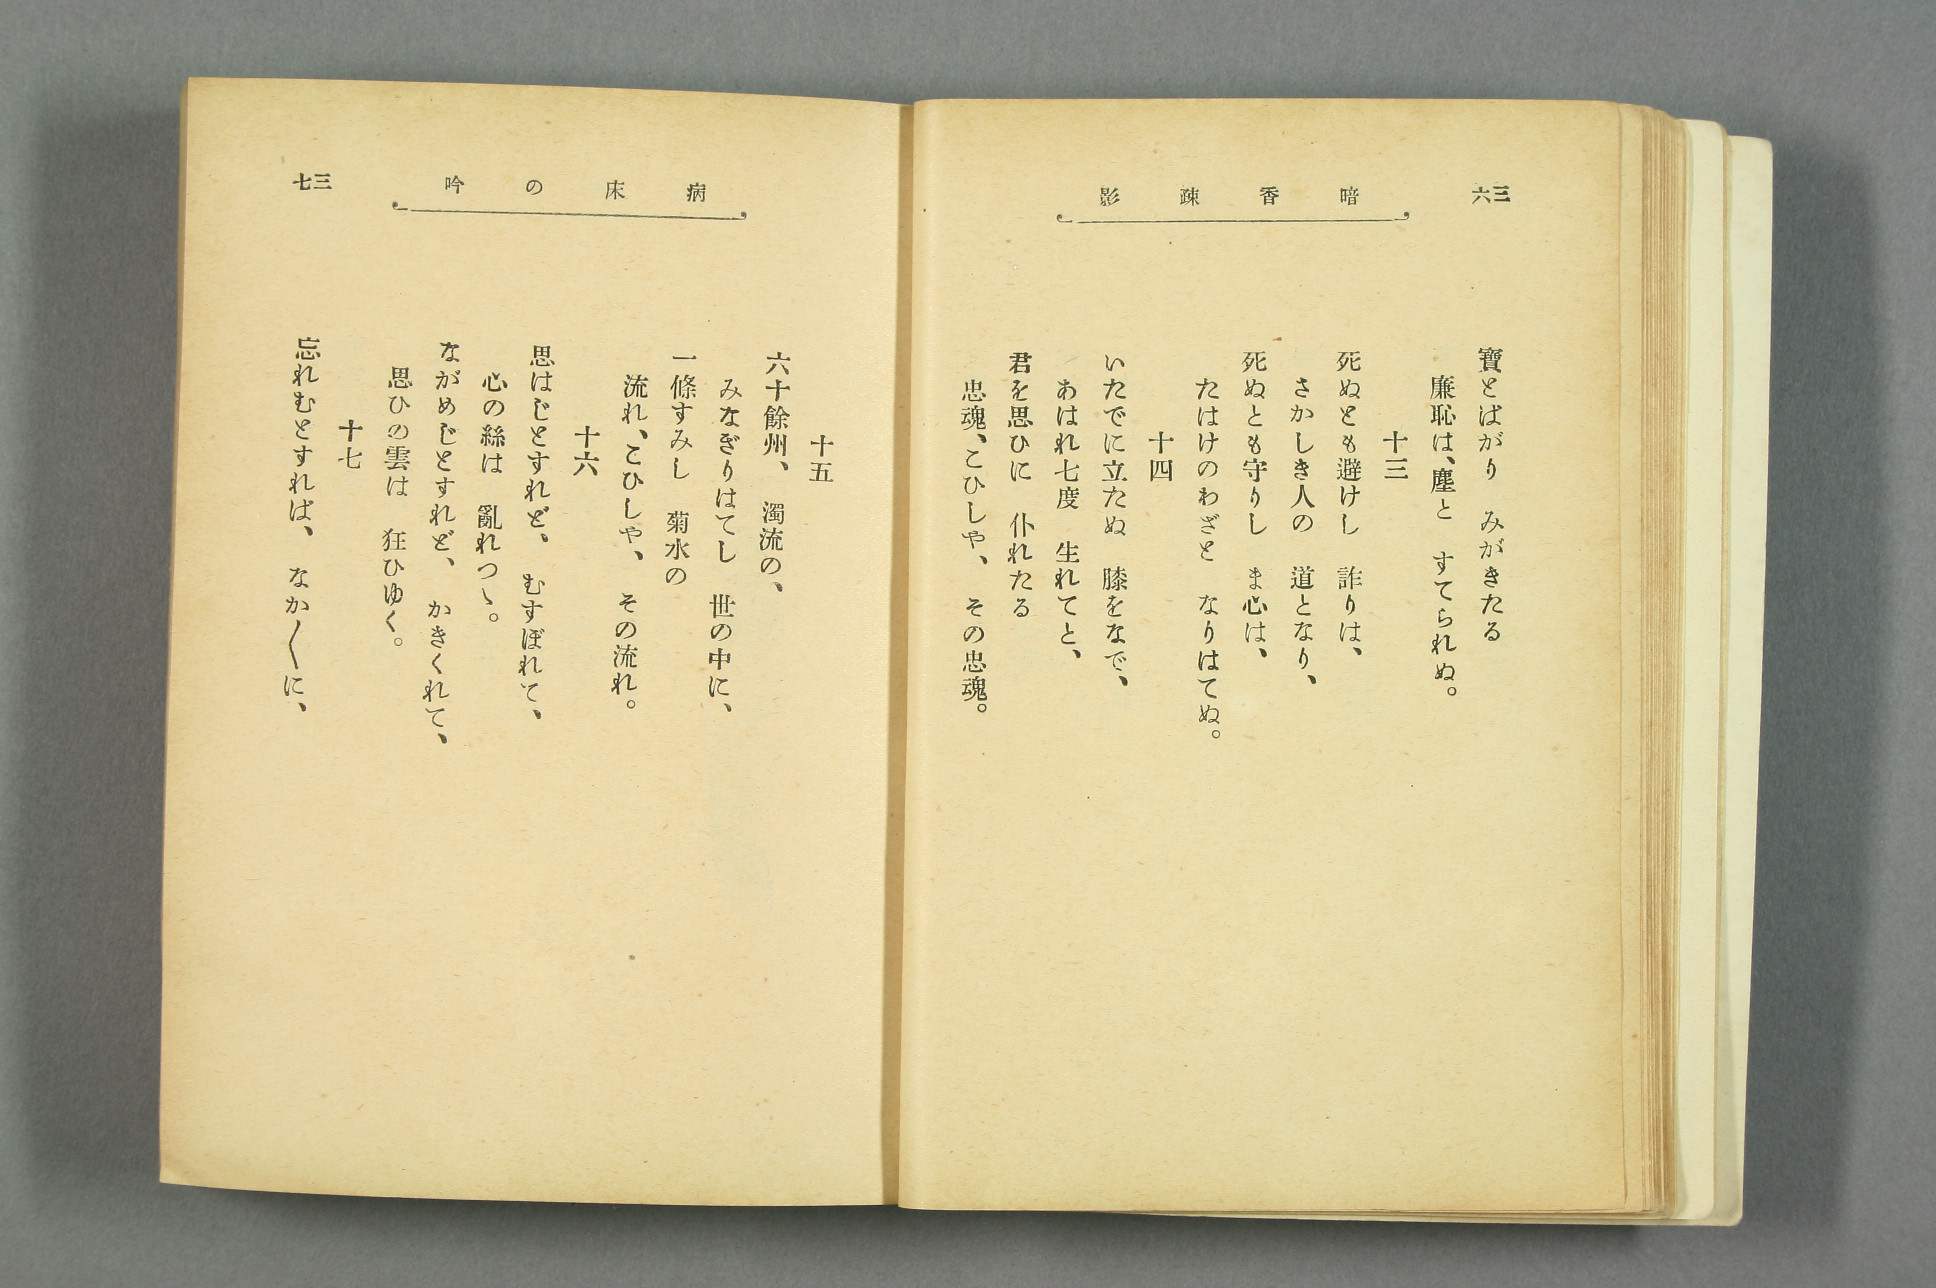 三六
暗香疎影
寶とばがり　みがきたる
廉恥は、塵と　すてられぬ。
十三
死ぬとも避けし　詐りは、
さかしき人の　道となり、
死ぬとも守りし　ま心は、
たはけのわざと　なりはてぬ。
十四
いたでに立たぬ　膝をなで、
あはれ七度　生れてと、
君を思ひに　仆れたる
忠魂、こひしや、　その忠魂。
病床の吟
三七
十五
六十餘州、　濁流の、
みなぎりはてし　世の中に、
一條すみし　菊水の
流れ、こひしや、　その流れ。
十六
思はじとすれど、　むすぼれて、
心の絲は　亂れつゝ。
ながめじとすれど、　かきくれて、
思ひの雲は　狂ひゆく。
十七
忘れむとすれば、　なか〳〵に、